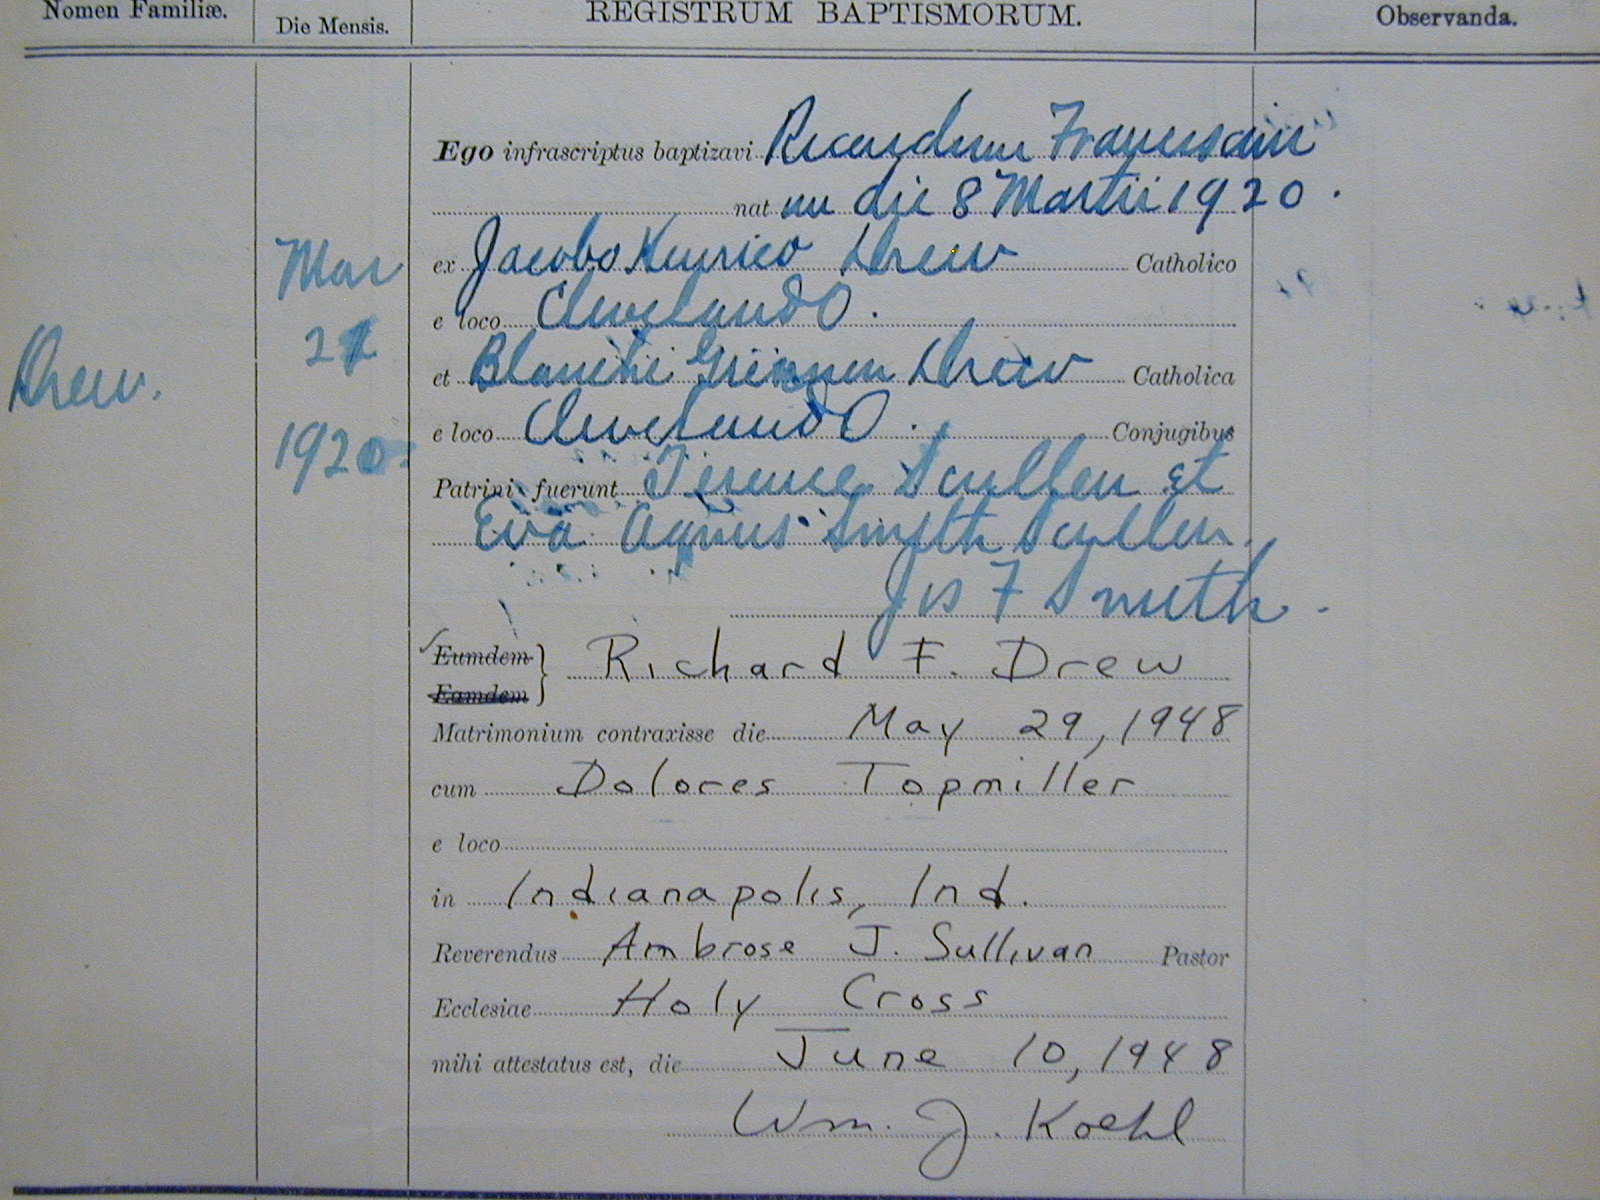 Nomen Familiæ.
Die Mensis.
REGISTRUM BAPTISMORUM.
Observanda.
Drew.
Mar
21
1920
Ego infrascriptus baptizavi Ricardum Franciscum
nat um die 8 Martii 1920.
ex Jacobo Henrico Drew Catholico
e loco Cleveland O.
et Blanche Drew Catholica
e loco Cleveland O. Conjugibus
Patrini fuerunt Terence Scullen et
Eva Agnes Smyth Scullen.
Jos F Smith.
Eumdem
Eamdem
Richard F. Drew
Matrimonium contraxisse die May 29, 1948
cum Dolores Topmiller
e loco
in Indianapolis, Ind.
Reverendus Ambrose J. Sullivan Pastor
Ecclesiae Holy Cross
mihi attestatus est, die June 10, 1948
Wm. J. Koehl